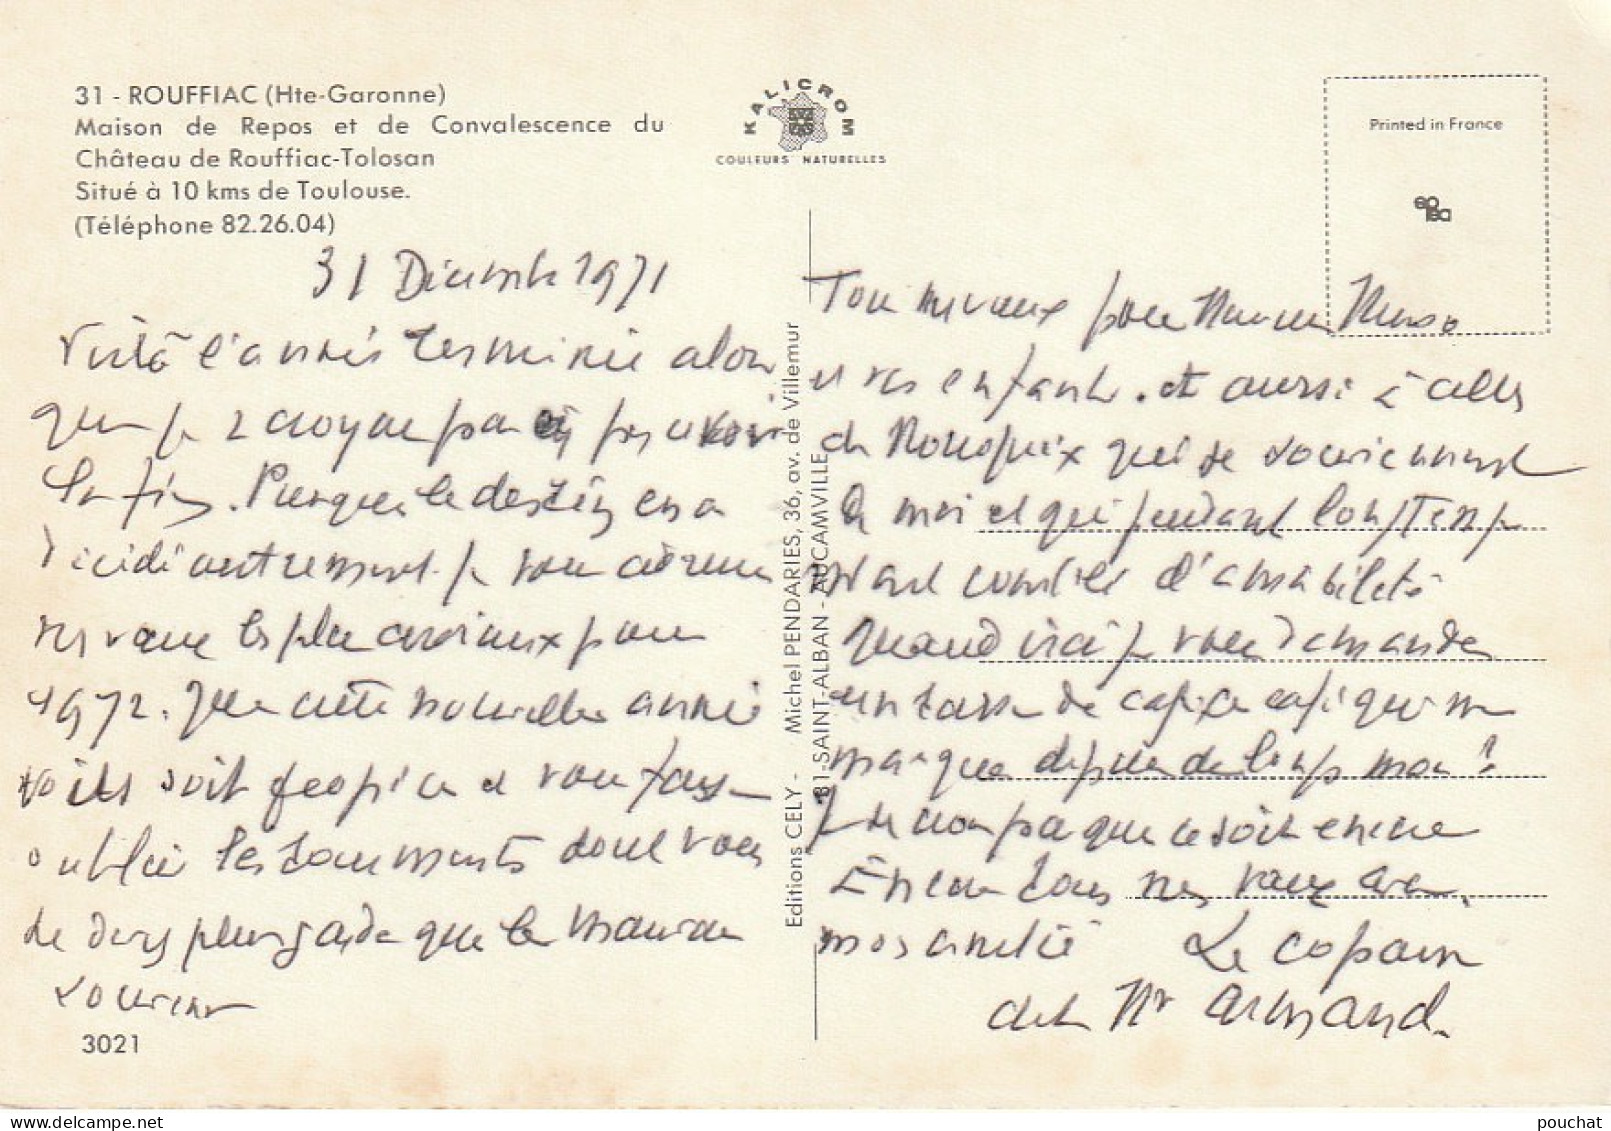 31 - ROUFFIAC (Hte-Garonne)
Maison de Repos et de Convalescence du
Château de Rouffiac-Tolosan
Situé à 10 kms de Toulouse.
(Téléphone 82.26.04)
KALICROM
COULEURS NATURELLES
Printed in France
31 Décembre 1971
Voilà l'année terminée alors
que je croyais pas en voir
la fin. Puisque le destin en a
décidé autrement je vous adresse
mes vœux les plus cordiaux pour
1972. Que cette nouvelle année
vous soit propice et vous fasse
oublier les tourments dont vous
ne devez plus garder que le mauvais
souvenir
3021
Editions CELY - Michel PENDARIES, 36, av. de Villemur
31-SAINT-ALBAN - AUCAMVILLE
Tous mes vœux pour
et vos enfants. et aussi à celles
de qui se souviennent
de moi et qui pendant longtemps
m'ont comblé d'amabilité
Quand irai je vous demander
une tasse de café ce café qui me
manque depuis de longs mois?
Je ne crois pas que ce soit encore
Encore tous mes vœux avec
mes amitiés Le copain
de Mr Armand.
pouchat